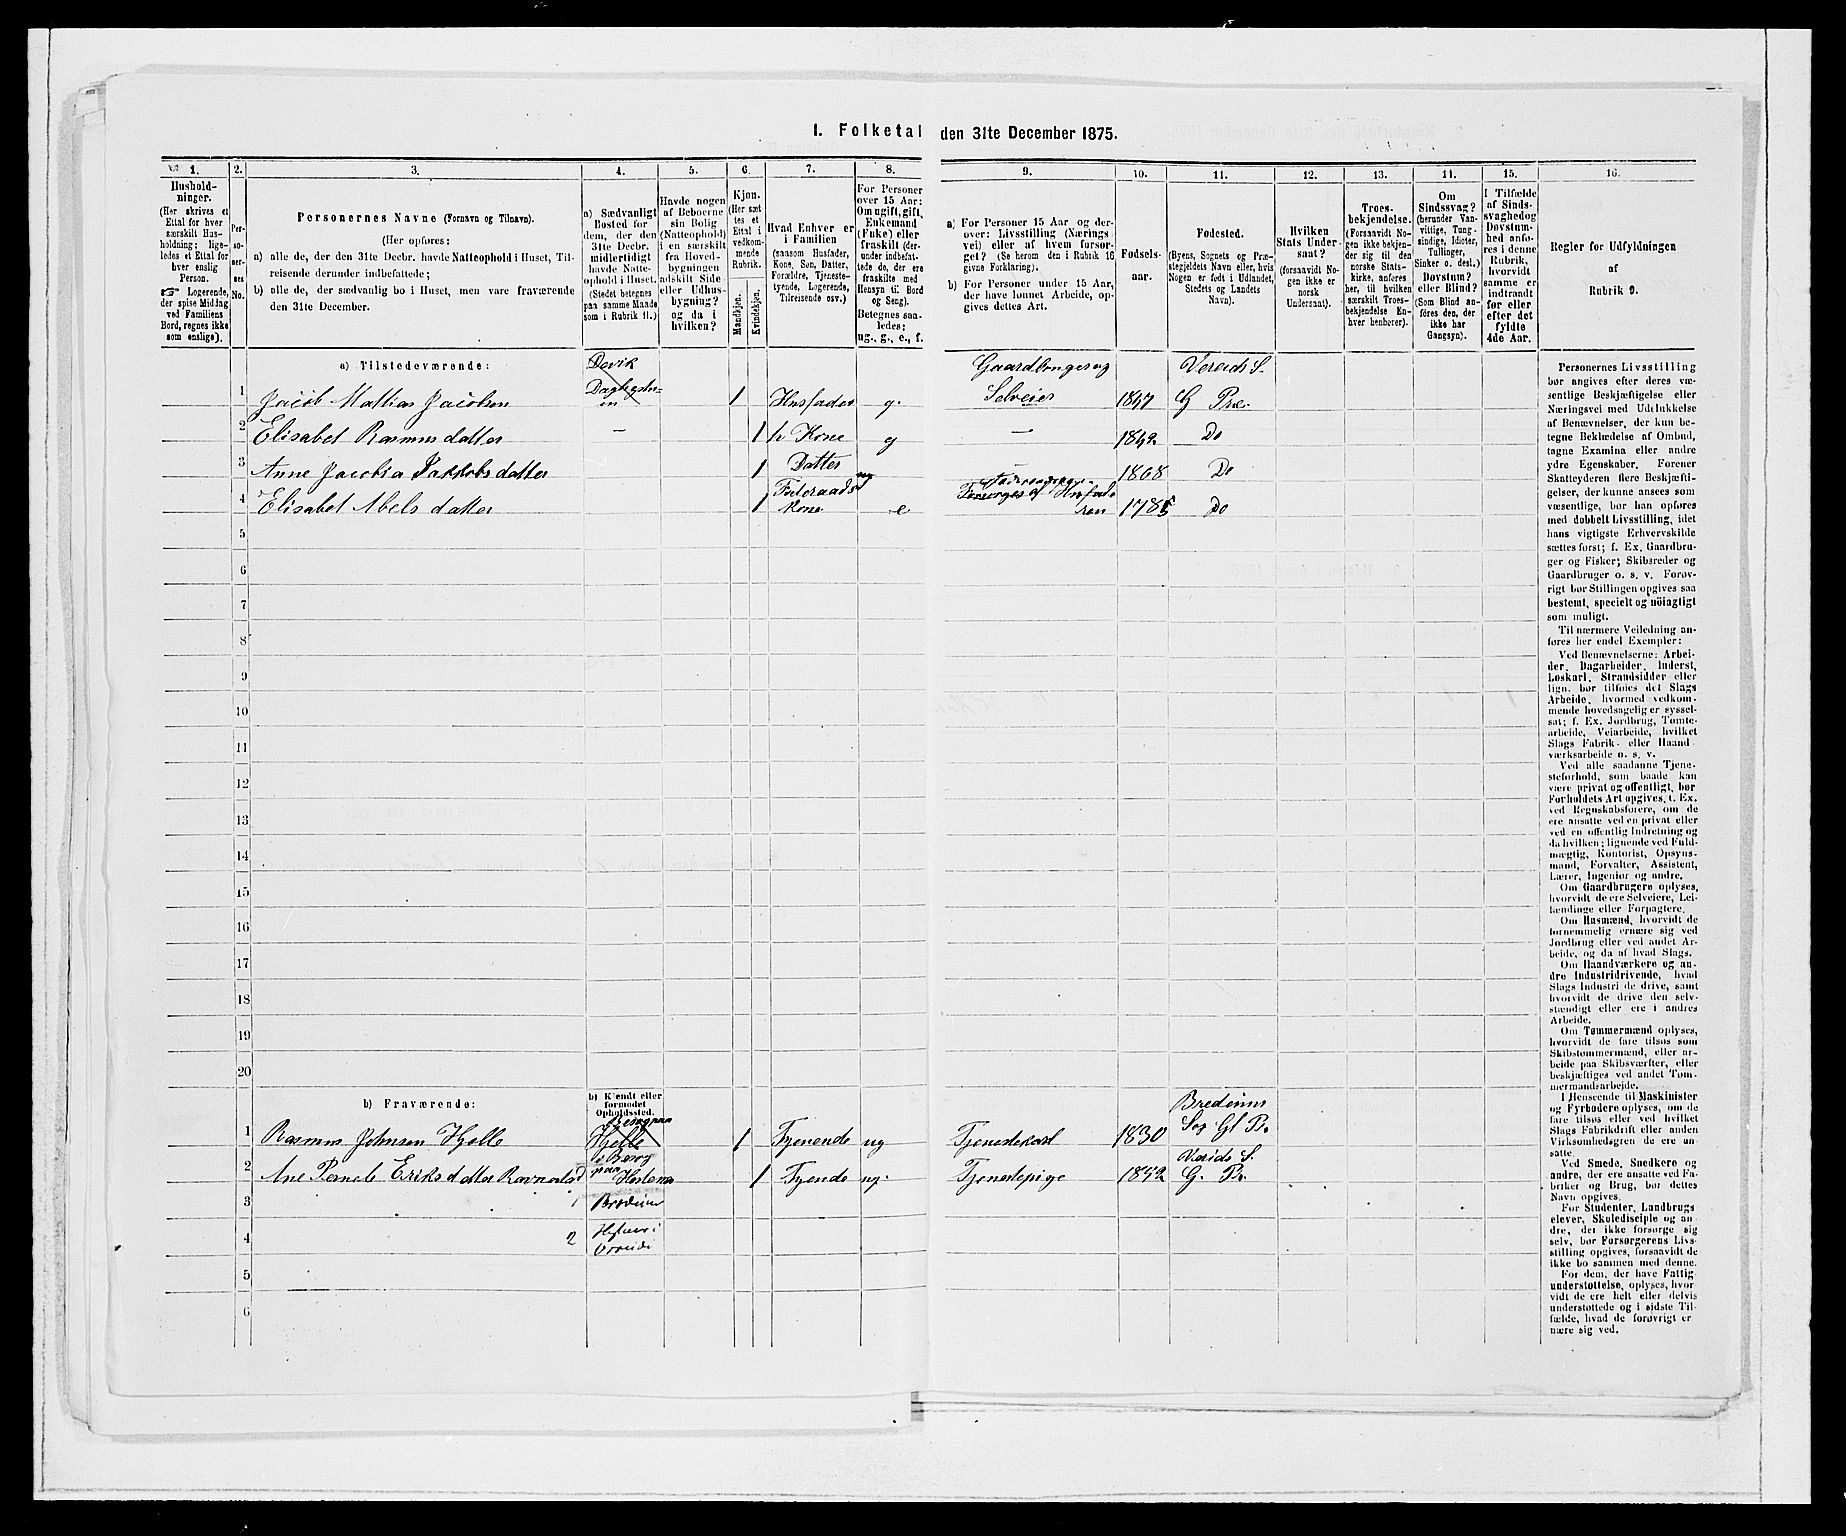 1. Folketal den 31te December 1875.
1.
2.
3.
4.
5.
6.
7.
8.
9.
10.
11.
12.
13.
11.
15.
16.
Hushold-
ninger.
(Her skrives et
Ettal for hver
særskilt Hus-
holdning; lige-
ledes et Ettal for
hver enslig
Person.
☞ Logerende,
der spise Middag
ved Familiens
Bord, regnes ikke
som enslige).
Per-
so-
ner-
nes
No.
Personernes Navne (Fornavn og Tilnavn).
(Her opføres:
a) alle de, der den 31te Decbr. havde Natteophold i Huset, Til-
reisende derunder indbefattede;
b) alle de, der sædvanlig bo i Huset, men vare fraværende
den 31te December.
a) Sædvanligt
Bosted for
dem, der den
31te Decbr.
midlertidigt
havde Natte-
ophold i Huset.
(Stedet betegnes
paa samme Maade
som i Rubrik 11.)
Havde nogen
af Beboerne
sin Bolig
(Natteophold)
i en særskilt
fra Hoved-
bygningen
adskilt Side-
eller Udhus-
bygning?
og da i
hvilken?
Kjøn.
(Her sæt
tes et
Ettal i
vedkom-
mende
Rubrik.
Mandkjøn.
Kvindekjøn.
Hvad Enhver er
i Familien
(saasom Husfader,
Kone, Søn, Datter,
Forældre, Tjeneste-
tyende, Logerende,
Tilreisende osv.)
For Personer
over 15 Aar:
Om ugift, gift,
Enkemand
(Enke) eller
fraskilt (der-
under indbefat-
tede de, der ere
fraskilte med
Hensyn til Bord
og Seng).
Betegnes saa-
ledes:
ug., g., e., f.
a) For Personer 15 Aar og der-
over: Livsstilling (Nærings
vei) eller af hvem forsør-
get? (Se herom den i Rubrik 16
givne Forklaring).
b) For Personer under 15 Aar,
der have lønnet Arbeide, op-
gives dettes Art.
Fødsels-
aar.
Fødested.
(Byens, Sognets og Præ-
stegjeldets Navn eller, hvis
Nogen er født i Udlandet,
Stedets og Landets
Navn).
Hvilken
Stats Under-
saat?
(forsaavidt No-
gen ikke er
norsk
Undersaat).
Troes-
bekjendelse.
(Forsaavidt No-
gen ikke bekjen-
der sig til den
norske Stats-
kirke, anføres
her, til hvilken
særskilt Troes-
bekjendelse En-
hver henhører).
Om
Sindssvag?
(herunder Van-
vittige, Tung-
sindige, Idioter,
Tullinger,
Sinker o. desl.)
Døvstum?
eller Blind?
(Som Blind an-
føres den, der
ikke har
Gangsyn).
I Tilfælde
af Sinds-
svaghed og
Døvstum-
hed anfø-
res i denne
Rubrik,
hvorvidt
samme er
indtraadt
før eller
efter det
fyldte
4de Aar.
Regler for Udfyldningen
af
Rubrik 9.
a) Tilstedeværende:
Davik
1 Jacob Mathias Jacobsen 1 Husfader g. Gaardbruger og Selveier 1847 Vereids S. G Præ.
2 Elisabet Rasmusdatter — 1 h Kone g — 1842 Do
3 Anne Jacobia Jakkobsdatter 1 Datter — 1868 Do
4 Elisabet Abelsdatter 1 Føderaads Kone e Forsørges af Husfaderen 1785 Do
5
6
7
8
9
10
11
12
13
14
15
16
17
18
19
20
b) Fraværende:
b) Kjendt eller
formodet
Opholdssted.
1 Rasmus Johnsen Hjelle Hjelle 1 Tjenende ug Tjenestekarl 1830 Sog Gl Pr.
2 Ane Pernele Eriksdatter Ravnestad 1 Tjende ug. Tjenestepige 1852 Vereids S. G. Pr.
3 1
4 2
5
6
Personernes Livsstilling
bør angives efter deres væ-
sentlige Beskjæftigelse eller
Næringsvei med Udelukkelse
af Benævnelser, der kun be-
tegne Beklædelse af Ombud,
tagne Examina eller andre
ydre Egenskaber. Forener
Skatteyderen flere Beskjæfti-
gelser, der kunne ansees som
væsentlige, bør han opføres
med dobbelt Livsstilling, idet
hans vigtigste Erhvervskilde
sættes først; f. Ex. Gaardbru-
ger og Fisker; Skibsreder og
Gaardbruger o. s. v. Forøv-
rigt bør Stillingen opgives saa
bestemt, specielt og nøiagtigt
som muligt.
Til nærmere Veiledning an-
føres her endel Exempler:
Ved Benævnelserne: Arbei-
der, Dagarbeider, Inderst,
Løskarl, Strandsidder eller
lign. bør tilføies det Slags
Arbeide, hvormed vedkom-
mende hovedsagelig er syssel-
sat; f. Ex. Jordbrug, Tomte-
arbeide, Veiarbeide, hvilket
Slags Fabrik- eller Haand-
værksarbeide o. s. v.
Ved alle saadanne Tjene-
steforhold, som baade kan
være privat og offentligt, bør
Forholdets Art opgives, t. Ex.
ved Regnskabsførere, om de
ere ansatte ved en privat eller
ved en offentlig Indretning og
da hvilken; lignende ved Fuld-
mægtig, Kontorist, Opsyns-
mand, Forvalter, Assistent,
Lærer, Ingeniør og andre.
Om Gaardbrugere oplyses,
hvorvidt de ere Selveiere, Lei-
lændinge eller Forpagtere.
Om Husmænd, hvorvidt de
fornemmelig ernære sig ved
Jordbrug eller ved andet Ar-
beide, og da af hvad Slags.
Om Haandværkere og an-
dre Industridrivende, hvad
Slags Industri de drive, samt
hvorvidt de drive den selv-
stændigt eller ere i andres
Arbeide.
Om Tømmermænd oplyses,
hvorvidt de fare tilsøs som
Skibstømmermænd, eller ar-
beide paa Skibsværfter, eller
beskjæftiges ved andet Tøm-
mermandsarbeide.
I Henseende til Maskinister
og Fyrbødere oplyses, om de
fare tilsøs eller ved hvilket
Slags Fabrikdrift eller anden
Virksomhedsgren de ere an-
satte.
Ved Smede, Snedkere og
andre, der ere ansatte ved Fa-
briker og Brug, bør dettes
Navn opgives.
For Studenter, Landbrugs
elever, Skoledisciple og an-
dre, der ikke forsørge sig
selv, bør Forsørgerens Livs-
stilling opgives, forsaavidt de
ikke bo sammen med denne.
For dem, der have Fattig-
understøttelse, oplyses, hvor-
vidt de ere helt eller delvis
understøttede og i sidste Til-
fælde, hvad de forøvrigt er
nære sig ved.